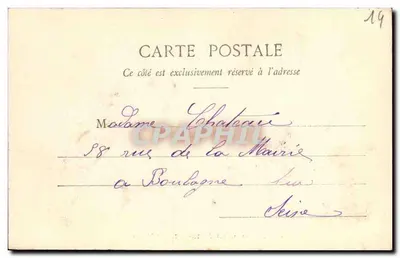 14
CARTE POSTALE
Ce côté est exclusivement réservé à l'adresse
Madame Chateau
58 rue de la Mairie
a Boulogne
Seine